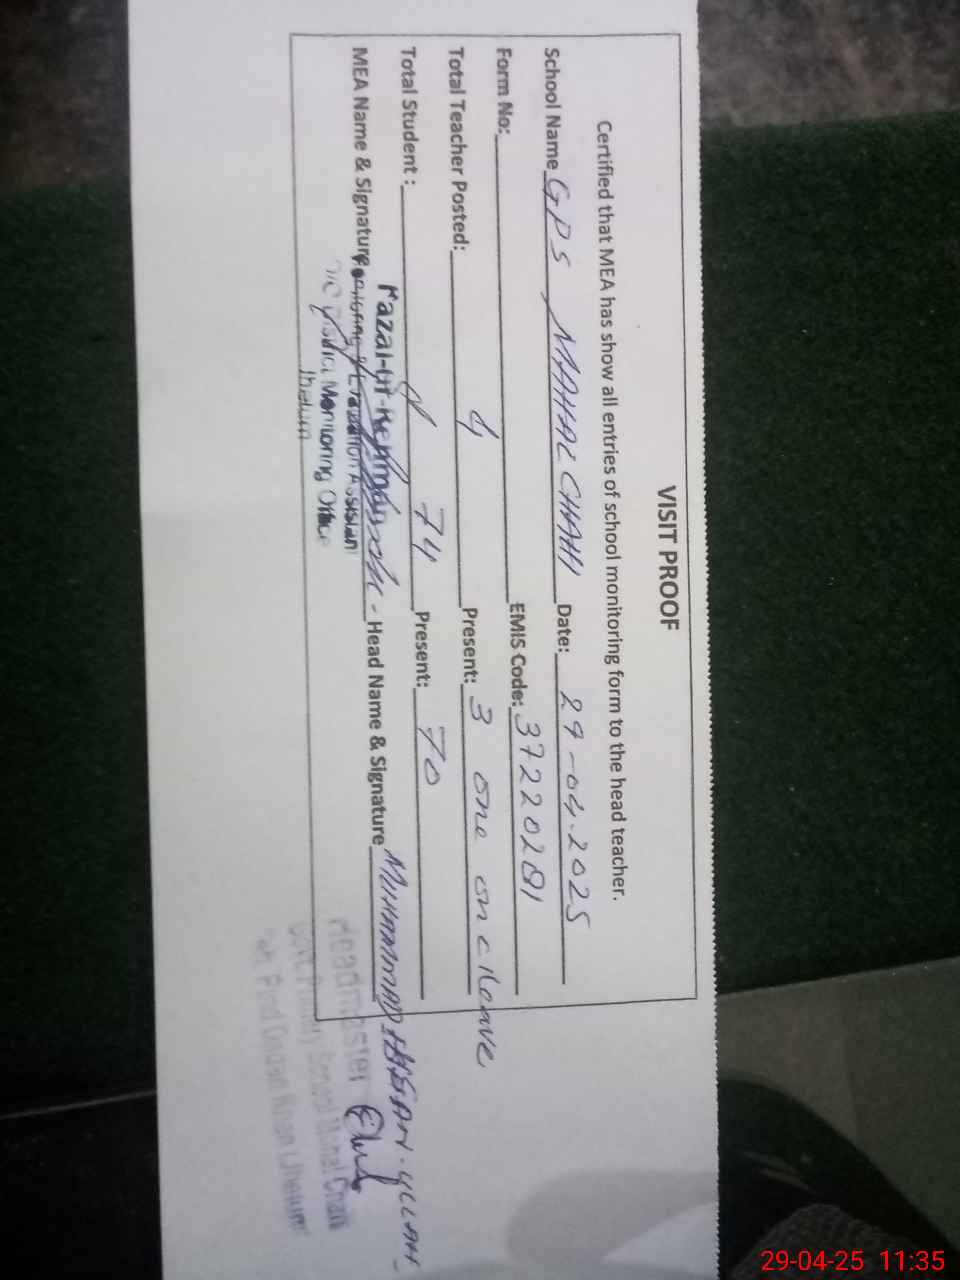 VISIT PROOF
Certified that MEA has show all entries of school monitoring form to the head teacher.
School Name GPS MAHAL CHAHI Date: 29-04-2025
Form No: EMIS Code: 37220281
Total Teacher Posted: 4 Present: 3 one on c leave
Total Student : 74 Present: 70
MEA Name & Signature Head Name & Signature MUHAMMAD HASSAN ULLAH
Fazal-ur-Rehman
Monitoring & Evaluation Assistant
District Monitoring Office
Jhelum
Headmaster
Govt. Primary School Mahal Chahi
Pind Dadan Khan (Jhelum)
29-04-25 11:35